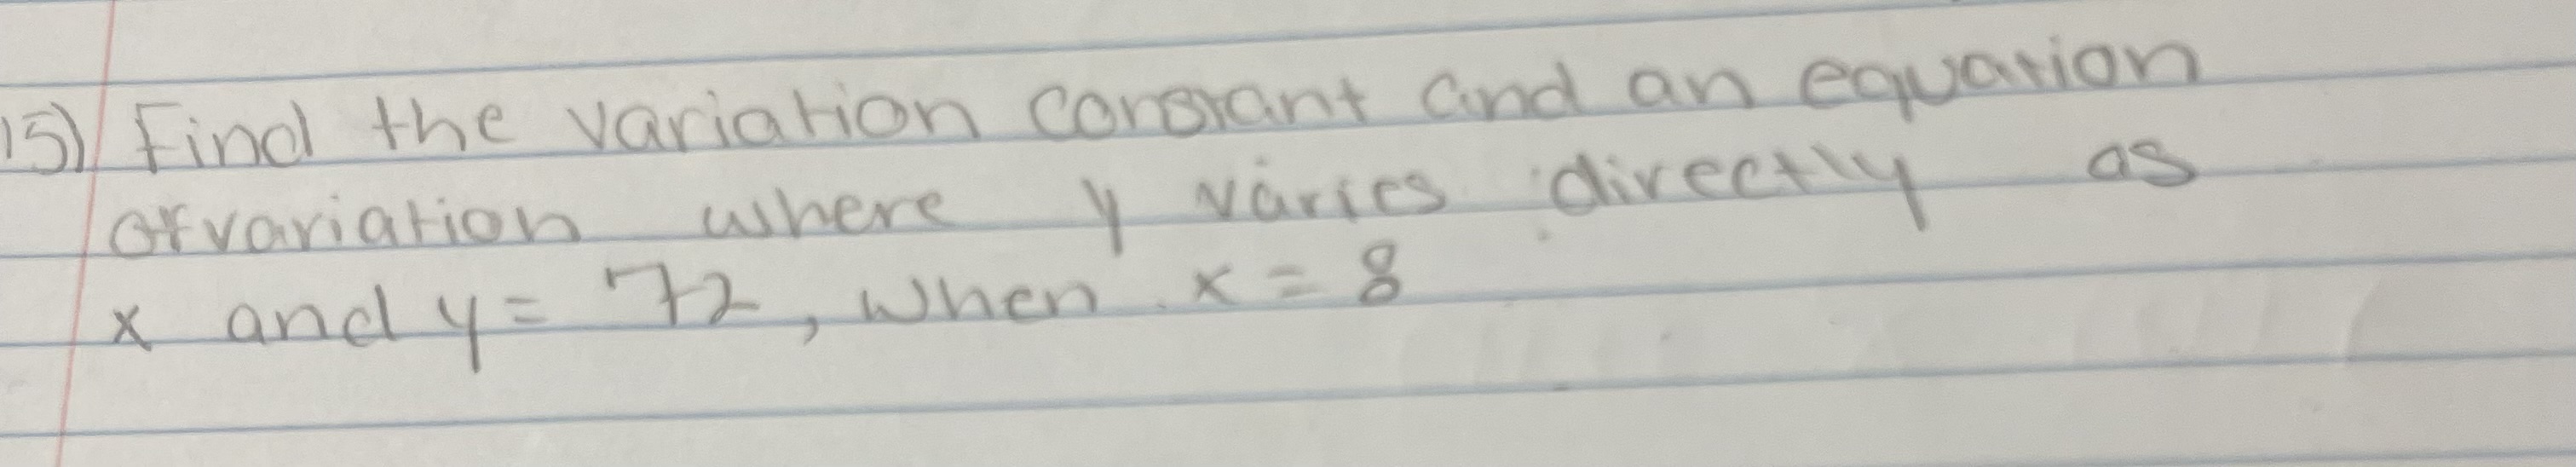 15) Find the variation constant and an equation
of variation where y varies directly as
x and y = 72, when x = 8